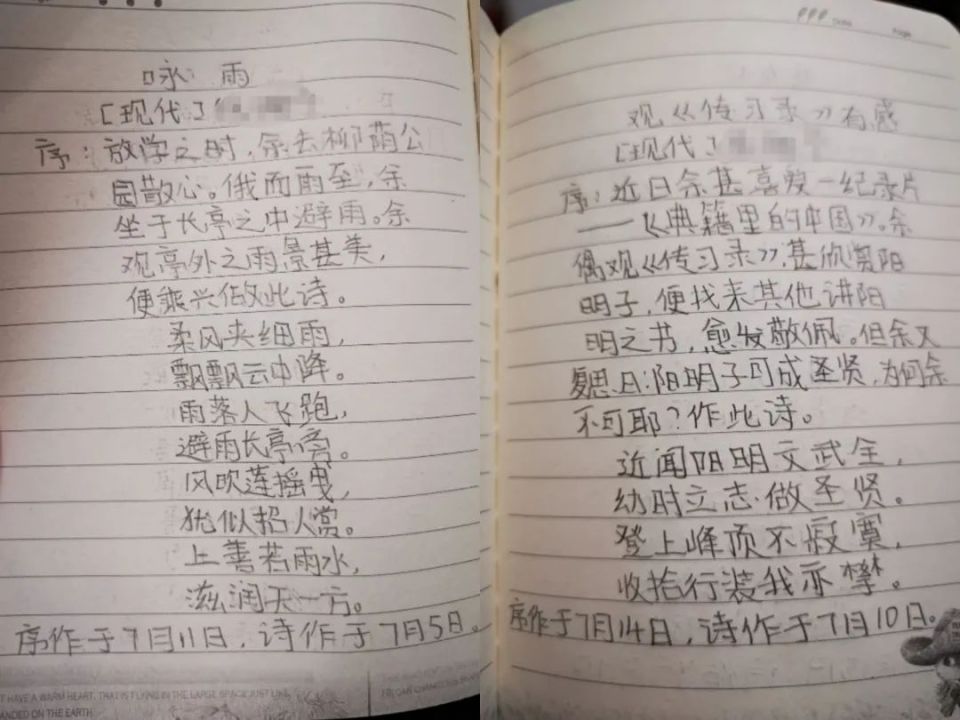 咏 雨
[现代]
序：放学之时，余去柳荫公
园散心。俄而雨至，余
坐于长亭之中避雨。余
观亭外之雨景甚美，
便乘兴做此诗。
柔风夹细雨，
飘飘云中降。
雨落人飞跑，
避雨长亭亮。
风吹莲摇曳，
犹似招人赏。
上善若雨水，
滋润天一方。
序作于7月11日，诗作于7月5日。
T HAVE A WARM HEART, THAT IS FLYING IN THE LARGE SPACE JUST LIKE
ANDED ON THE EARTH
观《传习录》有感
[现代]
序：近日余甚喜爱一纪录片
——《典籍里的中国》。余
偶观《传习录》，甚欣赏阳
明子，便找来其他讲阳
明之书，愈发敬佩。但余又
复思曰：阳明子可成圣贤，为何余
不可耶？作此诗。
近闻阳明文武全，
幼时立志做圣贤。
登上峰顶不寂寞，
收拾行装我亦攀。
序作于7月14日，诗作于7月10日。